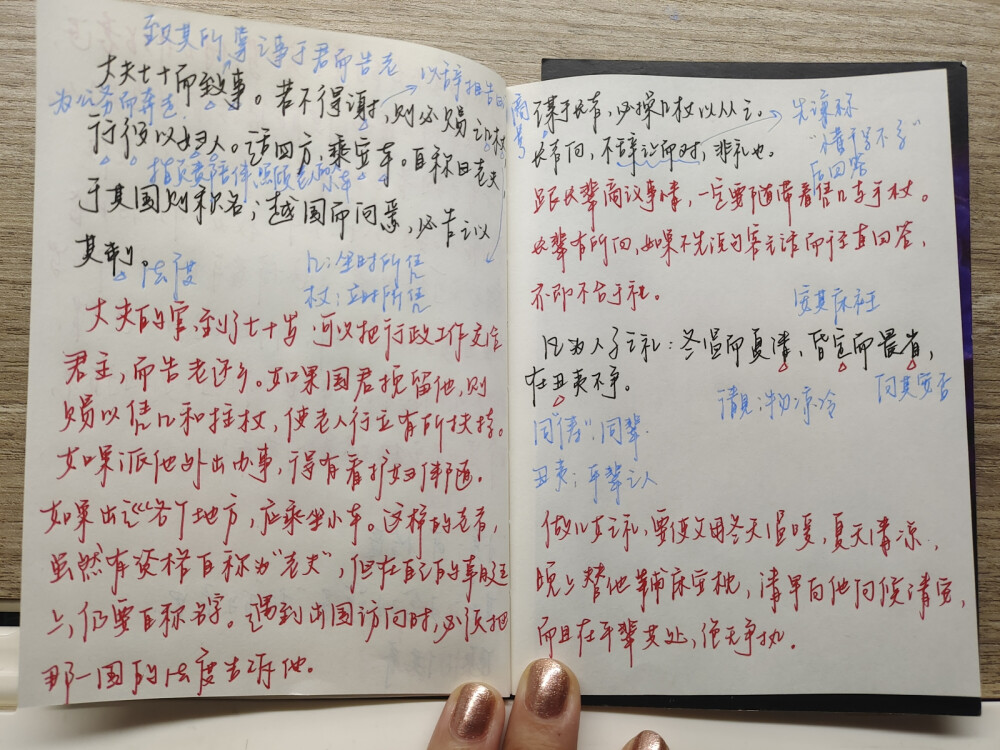 致其所掌之事于君而告老
大夫七十而致事。若不得谢,则必赐之几杖,
以辞相告曰
为公务而奔走
行役以妇人。适四方,乘安车。自称曰老夫
于其国则称名;越国而问焉,必告之以
其制。
法度
几:坐时所凭
杖:立时所凭
大夫的官,到了七十岁,可以把行政工作交给
君主,而告老还乡。如果国君挽留他,则
赐以凭几和拄杖,使老人行立有所扶持。
如果派他外出办事,得有看护妇伴随。
如果出巡各个地方,应乘坐小车。这样的老者,
虽然有资格自称为“老夫”,但在自己的朝廷
上,仍要自称名字。遇到出国访问时,必须把
那一国的法度告诉他。
商
谋于长者,必操几杖以从之。
先谦称
长者问,不辞让而对,非礼也。
后回答
跟长辈商议事情,一定要随带着凭几与手杖。
长辈有所问,如果不先说句客气话而径直回答,
亦即不合于礼。
安其床衽
凡为人子之礼:冬温而夏凊,昏定而晨省,
在丑夷不争。
问其安否
凉冷
同辈
丑夷:平辈之人
做儿女之礼,要使父母冬天温暖,夏天清凉,
晚上替他铺床安枕,清早向他问候请安,
而且在平辈共处,绝无争执。